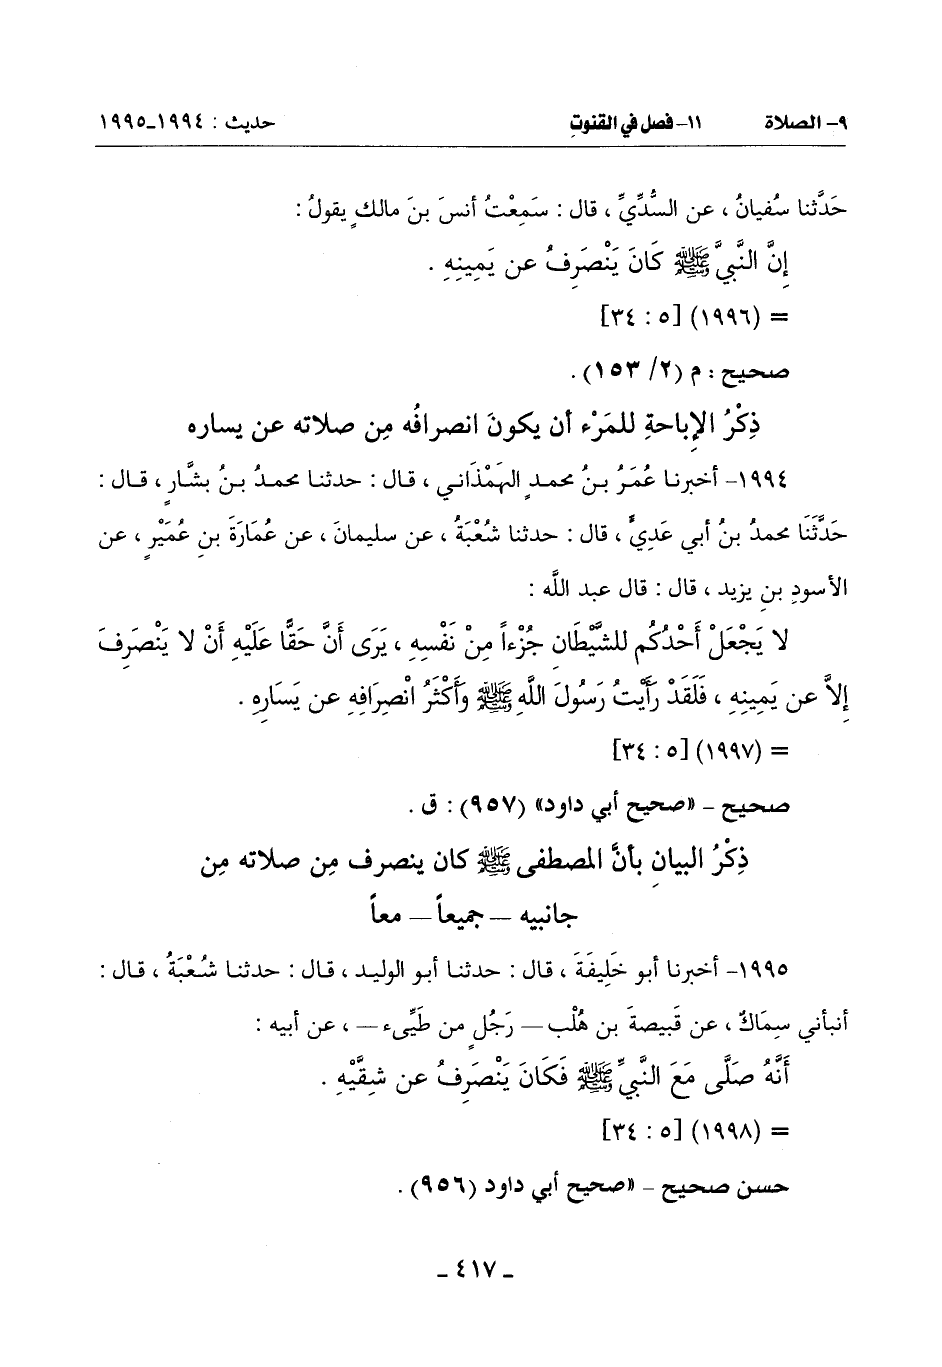 ٩- الصلاة ١١- فصل في القنوتِ حديث : ١٩٩٤-١٩٩٥
حَدَّثنا سُفيانُ ، عن السُّدِّيِّ ، قال : سَمِعْتُ أنسَ بنَ مالكٍ يقولُ :
إنَّ النبيَّ ﷺ كَانَ يَنْصَرِفُ عن يَمِينِهِ .
= (١٩٩٦) [٥ : ٣٤]
صحيح : م (٢/ ١٥٣) .
ذِكْرُ الإباحةِ للمَرْءِ أن يكونَ انصرافُه مِن صلاته عن يساره
١٩٩٤- أخبرنا عُمَرُ بنُ محمدٍ الهَمْذَاني ، قال : حدثنا محمدُ بنُ بشَّارٍ ، قال :
حَدَّثَنَا محمدُ بنُ أبي عَدِيٍّ ، قال : حدثنا شُعْبَةُ ، عن سليمانَ ، عن عُمَارَةَ بنِ عُمَيْرٍ ، عن
الأسودِ بنِ يزيد ، قال : قال عبد اللَّه :
لا يَجْعَلْ أَحْدُكُم للشَّيْطَانِ جُزْءاً مِنْ نَفْسِهِ ، يَرَى أَنَّ حَقَّا عَلَيْهِ أَنْ لا يَنْصَرِفَ
إلاَّ عن يَمِينِهِ ، فَلَقَدْ رَأَيْتُ رَسُولَ اللَّهِ ﷺ وَأَكْثَرُ انْصِرَافِهِ عن يَسَارِهِ .
= (١٩٩٧) [٥ : ٣٤]
صحيح - «صحيح أبي داود» (٩٥٧) : ق .
ذِكْرُ البيانِ بأنَّ المصطفى ﷺ كان ينصرف مِن صلاته مِن
جانبيه - جميعاً - معاً
١٩٩٥- أخبرنا أبو خَلِيفَةَ ، قال : حدثنا أبو الوليد ، قال : حدثنا شُعْبَةُ ، قال :
أنبأني سِمَاكٌ ، عن قَبيصةَ بن هُلْب - رَجُلٍ من طَيِّىء - ، عن أبيه :
أَنَّهُ صَلَّى مَعَ النَّبيِّ ﷺ فَكَانَ يَنْصَرِفُ عن شِقَّيْهِ .
= (١٩٩٨) [٥ : ٣٤]
حسن صحيح - «صحيح أبي داود (٩٥٦) .
- ٤١٧ -